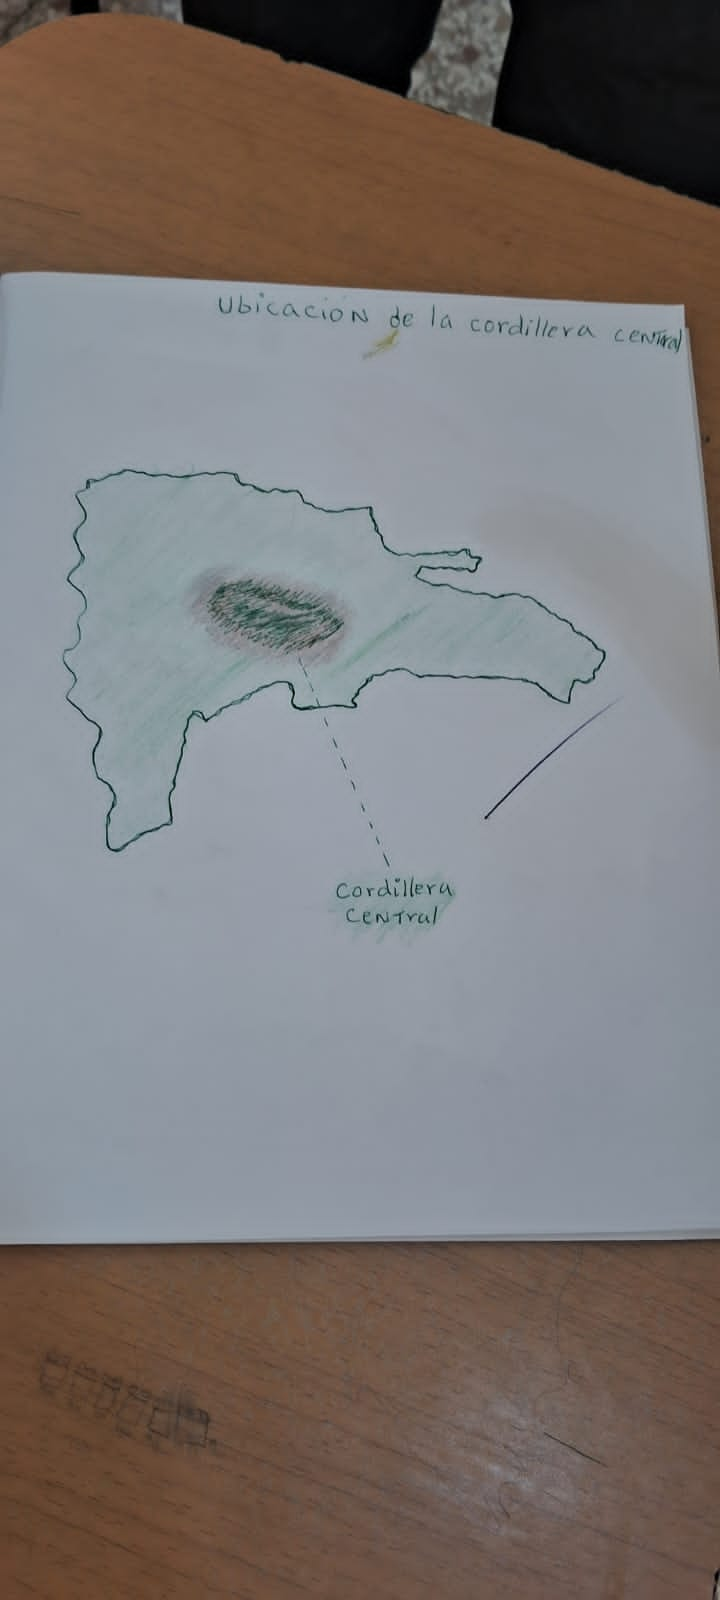 Ubicación de la cordillera central
Cordillera
central